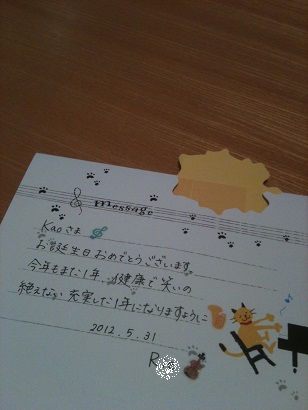 message
Kaoさま
お誕生日おめでとうございます
今年もまた1年、健康で笑いの
絶えない充実した1年になりますように
2012.5.31
R